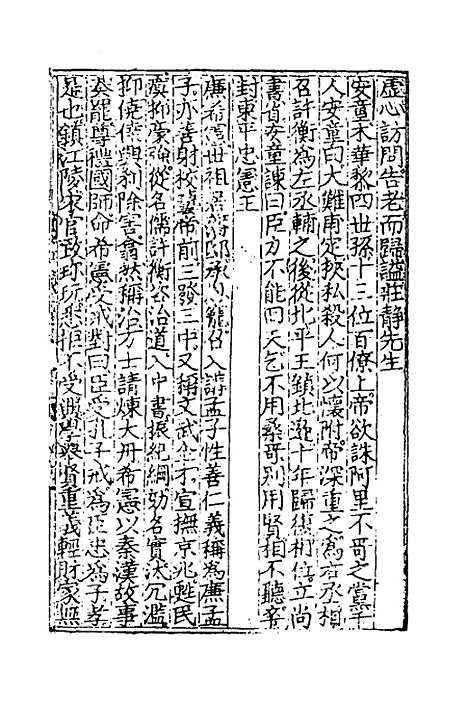 虚心訪問告老而歸謚莊靜先生
安童木華黎四世孫十三位百僚上帝欲誅阿里不哥之黨千
人安童曰大難甫定挾私殺人何以懷附帝深重之為右丞相
召許衡為左丞輔之後從北平王鎮北邊十年歸復相位立尚
書省安童諫曰臣力不能回天乞不用桑哥別用賢相不聽卒
封東平忠憲王
廉希憲世祖居潛邸承以寵召入講孟子性善仁義稱為廉孟
子亦善射校藝帝前三發三中又稱文武全才宣撫京兆甦民
瘼抑豪強從名儒許衡咨治道入中書振紀綱劾名實汰冗濫
抑僥倖興利除害翕然稱治方士請煉大丹希憲以秦漢故事
奏罷尊禮國師命希憲受戒對曰臣受孔子戒為臣忠為子孝
是也鎮江陵求官致珍玩悉拒不受興學養賢重義輕財家無